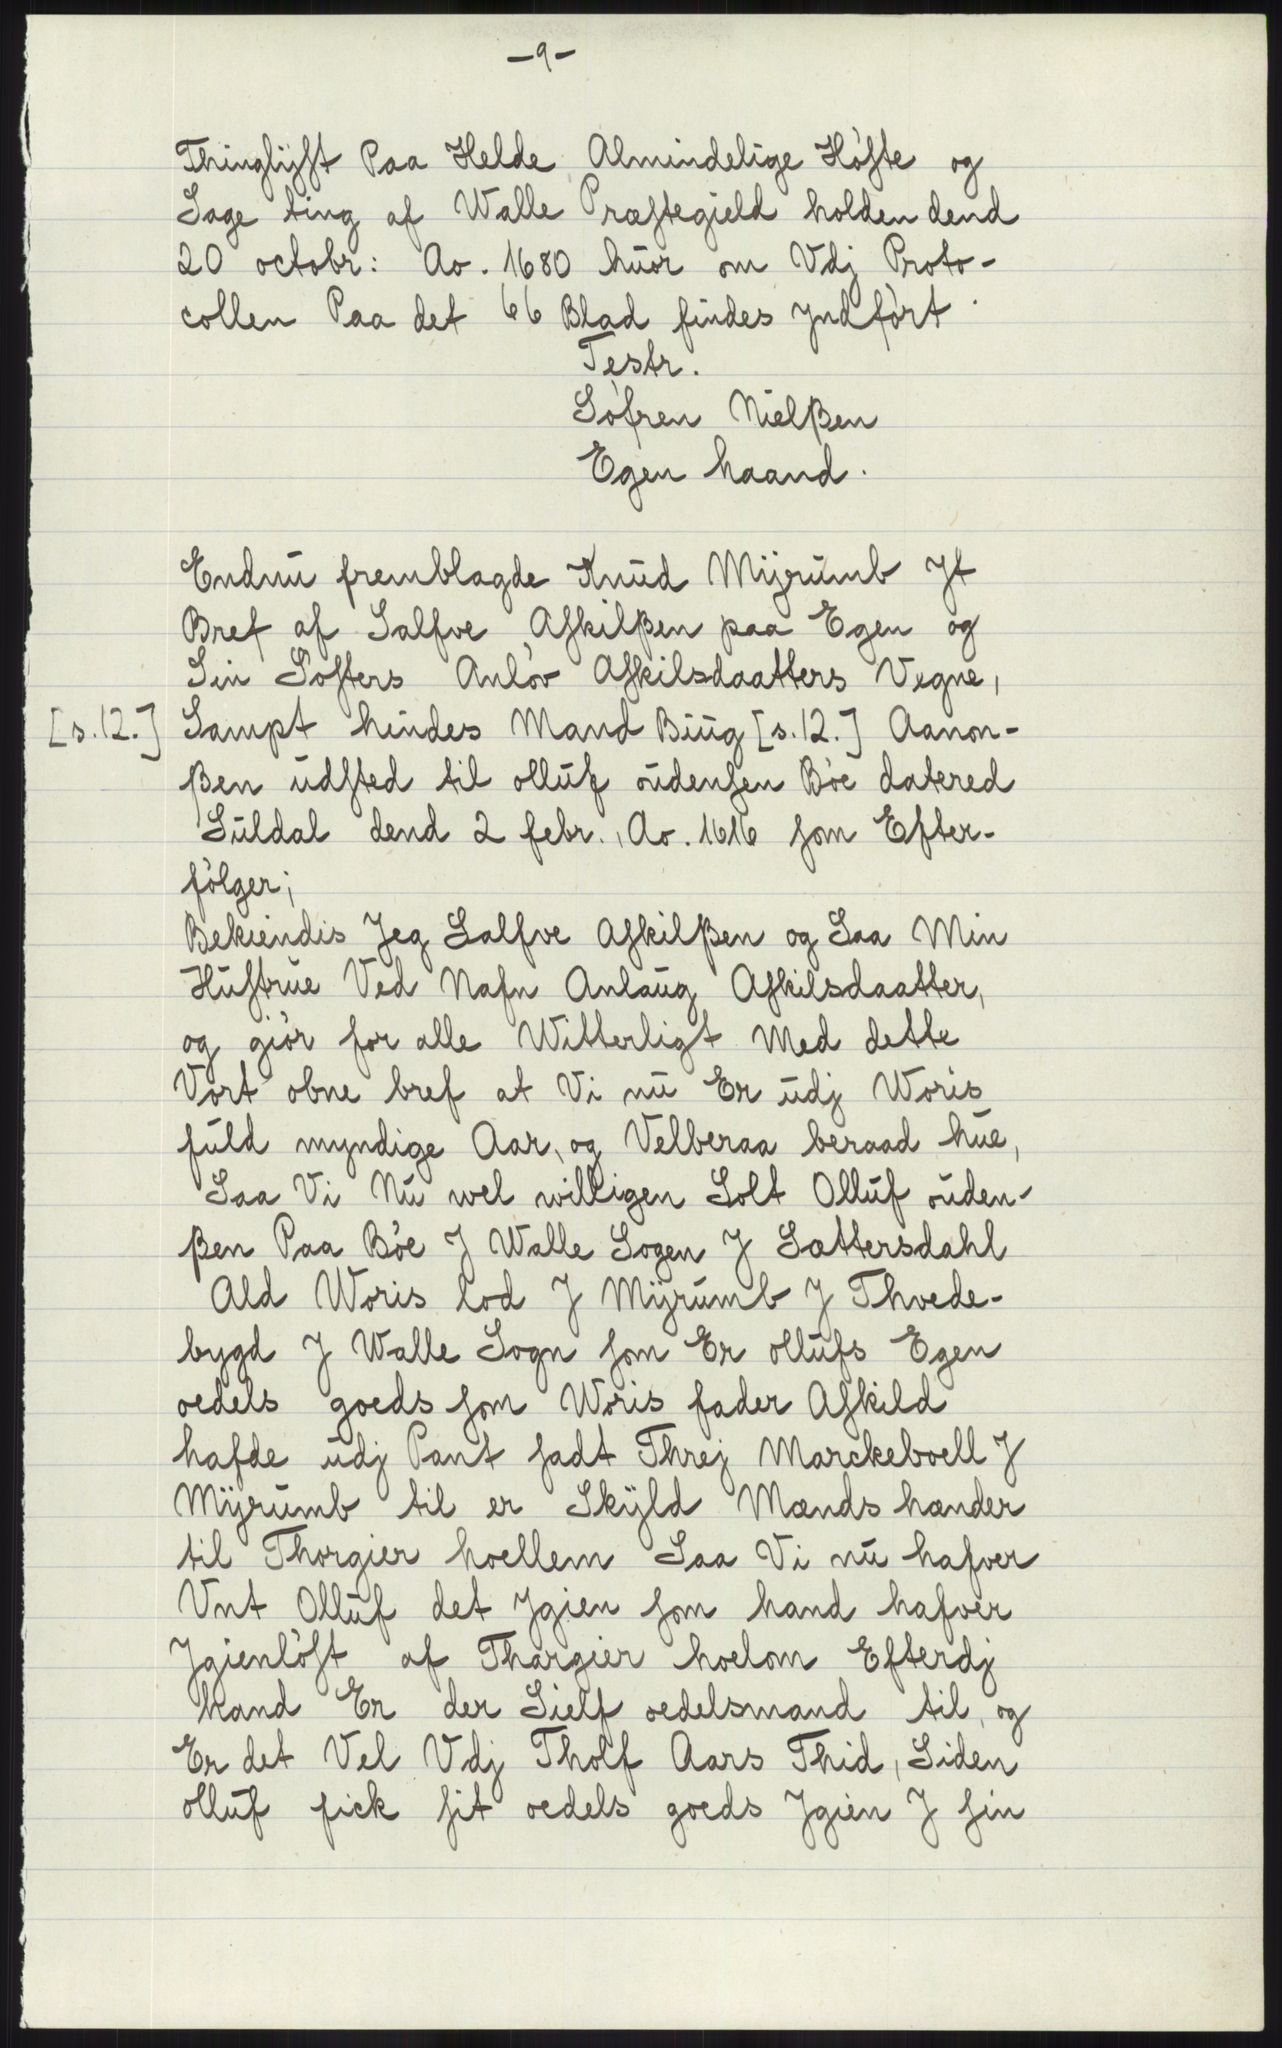 -9-
Thinglÿst Paa Helde Almindelige Høste og
Sage ting af Walle Præstegield holden dend
20 octobr: Ao. 1680 huor om Vdj Proto-
collen Paa det 66 Blad findes Jndført.
Testr.
Søfren Nielßen
Egen haand.
Endnu fremblagde Knud Mÿrumb Jt
Bref af Salfve Askilßen paa Egen og
Sin Søsters Anløv Askilsdaatters Vegne,
[s.12.] Sampt hindes Mand Biug [s.12.] Aanon-
ßen udsted til olluf oudensen Bøe datered
Suldal dend 2 febr., Ao. 1616 som Efter-
følger;
Bekiendis Jeg Salfve Askilßen og Saa Min
Hustrue Ved Nafn Anlaug Askilsdaatter,
og giør for alle Witterligt Med dette
Vort obne bref at Vi nu Er udj Woris
fuld myndige Aar, og Velberaa beraad hue,
Saa Vi Nu wel willigen Solt Olluf ouden-
ßen Paa Bøe J Walle Sogen J Sættersdahl
Ald Woris lod J Mÿrumb J Thvede-
bygd J Walle Sogn som Er ollufs Egen
oedels goeds som Woris fader Askild
hafde udj Pant sadt Threj Marckeboell J
Mÿrumb til er Skÿld Mænds hænder
til Thorgier hoellem Saa Vi nu hafver
Vnt Olluf det Jgien som hand hafver
Jgienløst af Thargier hoelom Efterdj
hand Er der Sielf oedelsmand til, og
Er det Vel Vdj Tholf Aars Thid, Siden
olluf fick sit oedels goeds Jgien J sin